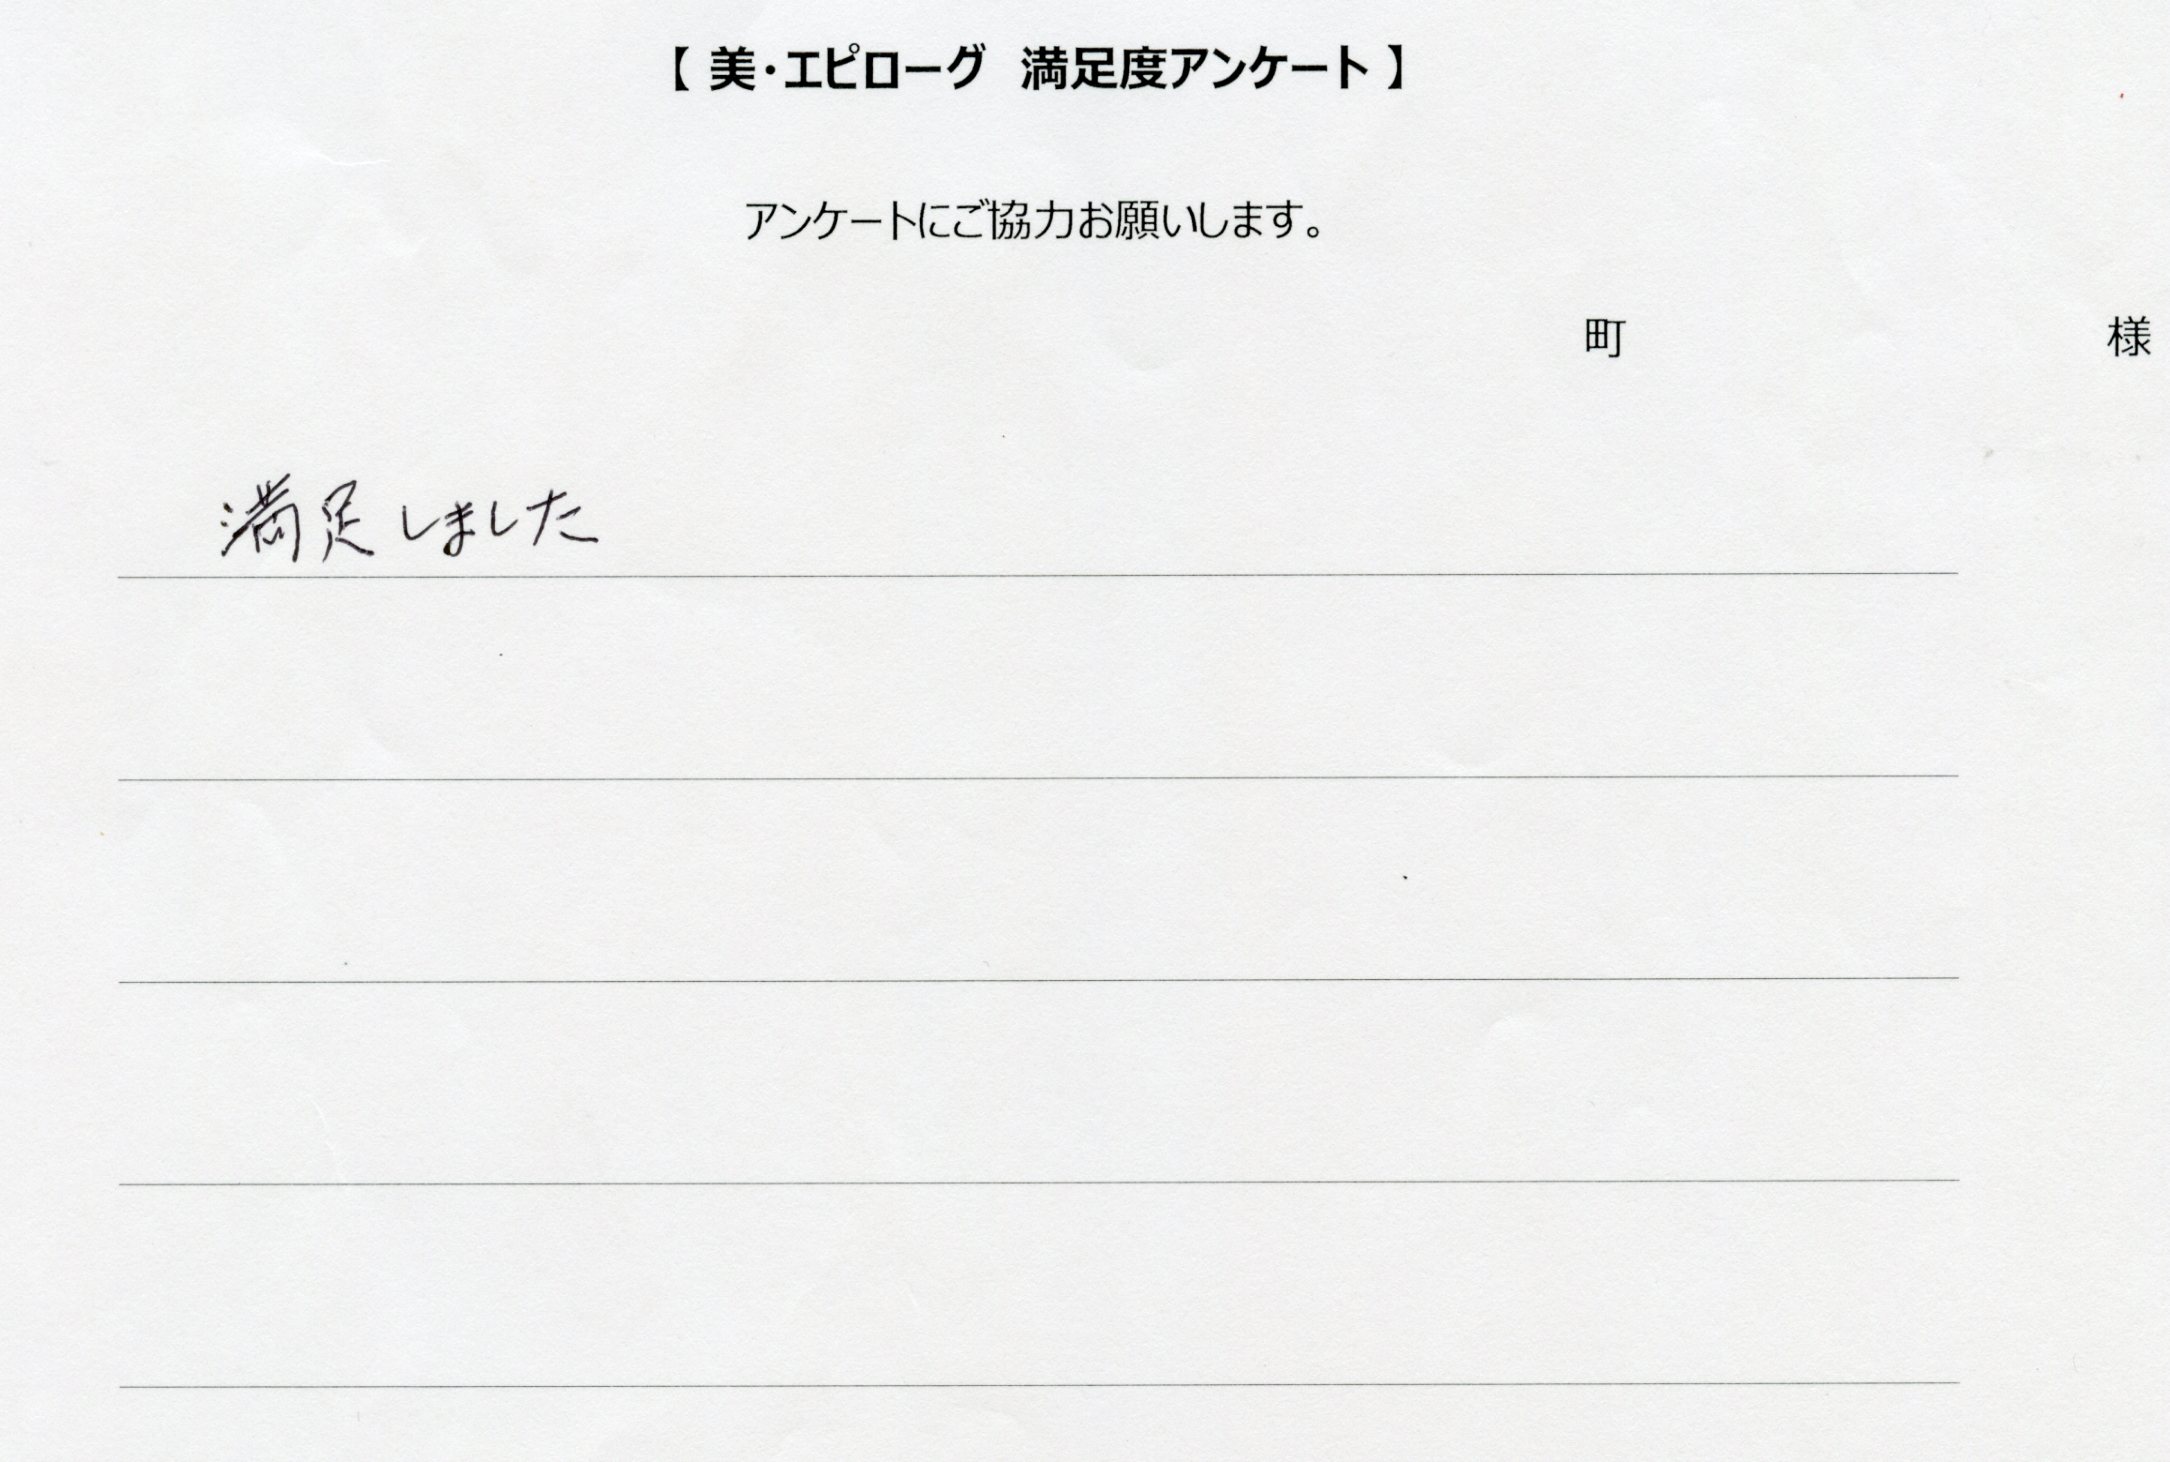 【 美・エピローグ　満足度アンケート 】
アンケートにご協力お願いします。
町　様
満足しました